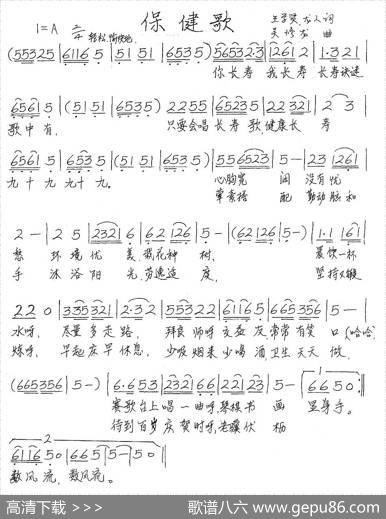 保健歌
1=A 2/4 轻松、愉快地 王
(55325 | 6116 5 | 51 51 | 6535) | 565323 | 1261 2 | 1·3 21 |
你长寿 我长寿 长寿诀谜
6561 5 | (51 51 | 6535) | 2255 | 656325 | 22 321 | 2 3 |
歌中有, 只要会唱长寿歌健康长寿
6561 5 | 653 5 | (51 51 | 6535) | 556523 | 5 — | 23 1261 |
九十九 九十九。 心胸宽阔 没有忧
荤素搭配 勤动脑和
2 — | 25 | 2321 6 | 62 126 | 5 — | (62 126 | 5 —) | 1·1 161 |
愁 环境优美 栽花种树, 晨饮一杯
手 沐浴阳光 劳逸适度, 坚持
220 | 335321 | 2·32 | 55322 | 61165 | 665356 | 5 — |
水呀, 尽量多走路, 拜良师呀交益友,常常有笑口(哈哈)
炼呀, 早起床早休息, 少吸烟来少喝酒卫生天天做。
(665356 | 5 —) | 6·653 | 2321 66 | 22123 | 5 — | 6650 :||
赛歌台上唱一曲呀,琴棋书画 显身手。
待到百岁庆贺时呀,老骥伏枥
61165 0 | 665 | 5 — | 50 ||
数风流,数风流。
高清下载 >>>
歌谱八六 www.gepu86.com